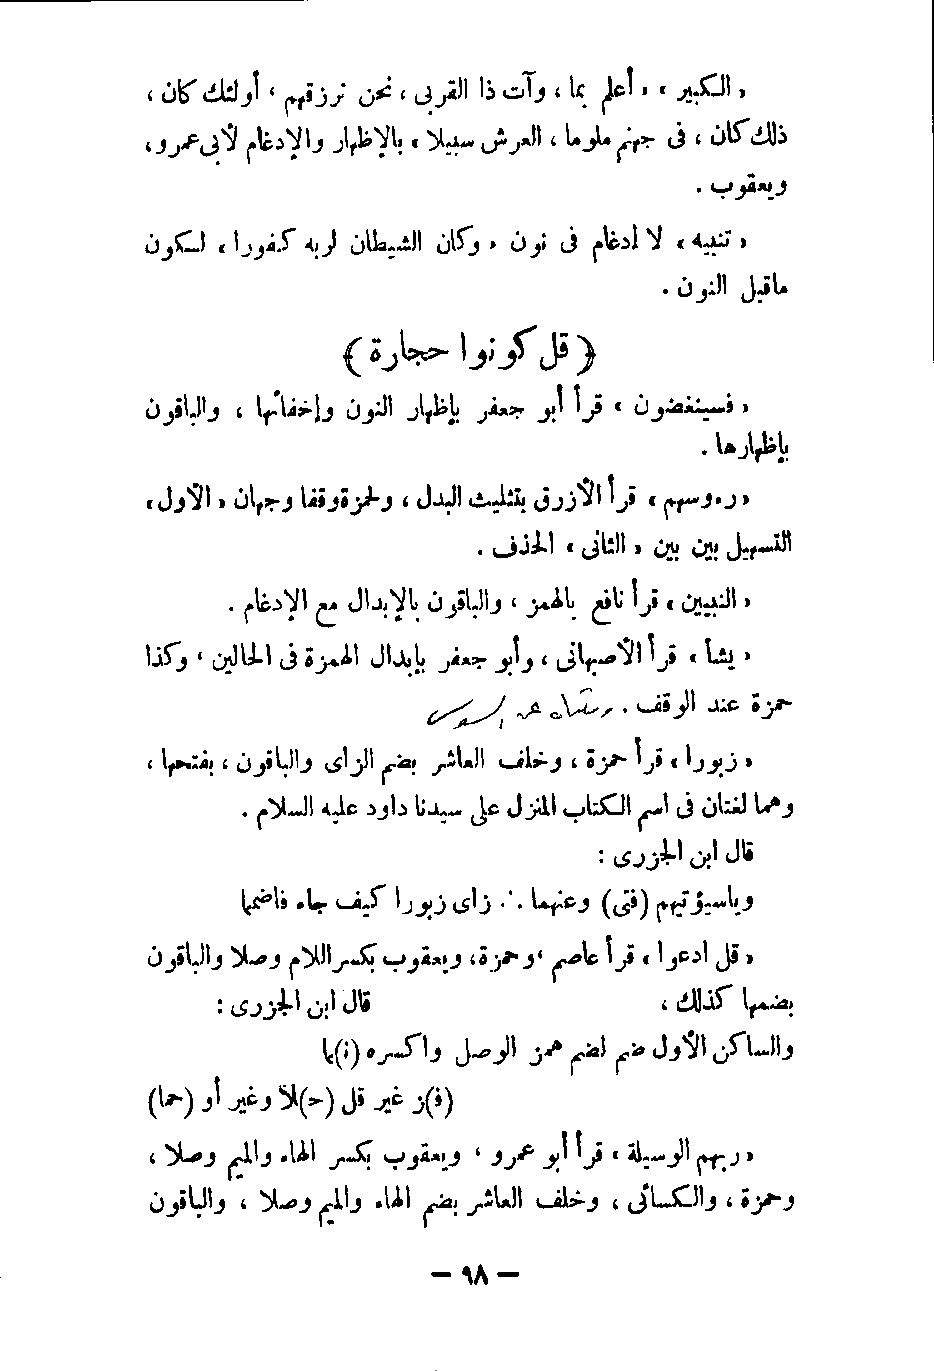 « الكبير » ، « أعلم بما ، وآت ذا القربى ، نحن نرزقهم ، أولئك كان ،
ذلك كان ، فى جهنم ملوما ، العرش سبيلا » بالإظهار والإدغام لأبى عمرو ،
ويعقوب .
« تنبيه » لا إدغام فى نون « وكان الشيطان لربه كفورا » لسكون
ماقبل النون .
﴿ قل كونوا حجارة ﴾
« فسينغضون » قرأ أبو جعفر بإظهار النون وإخفائها ، والباقون
بإظهارها .
« رءوسهم » قرأ الأزرق بتثليث البدل ، ولحمزة وقفا وجهان « الأول »
التسهيل بين بين « الثانى » الحذف .
« النبيين » قرأ نافع بالهمز ، والباقون بالإبدال مع الإدغام .
« يشأ » قرأ الأصبهانى ، وأبو جعفر بإبدال الهمزة فى الحالين ، وكذا
حمزة عند الوقف .
« زبورا » قرأ حمزة ، وخلف العاشر بضم الزاى والباقون ، بفتحها ،
وهما لغتان فى اسم الكتاب المنزل على سيدنا داود عليه السلام .
قال ابن الجزرى :
وياسيؤتيهم (فتى) وعنهما .·. زاى زبورا كيف جاء فاضمما
« قل ادعوا » قرأ عاصم ، وحمزة ، ويعقوب بكسر اللام وصلا والباقون
بضمها كذلك ، قال ابن الجزرى :
والساكن الأول ضم لضم همز الوصل واكسره (ن)ما
(ف)ز غير قل (ح)لا وغير أو (حما)
« ربهم الوسيلة » قرأ أبو عمرو ، ويعقوب بكسر الهاء والميم وصلا ،
وحمزة ، والكسائى ، وخلف العاشر بضم الهاء والميم وصلا ، والباقون
— ٩٨ —